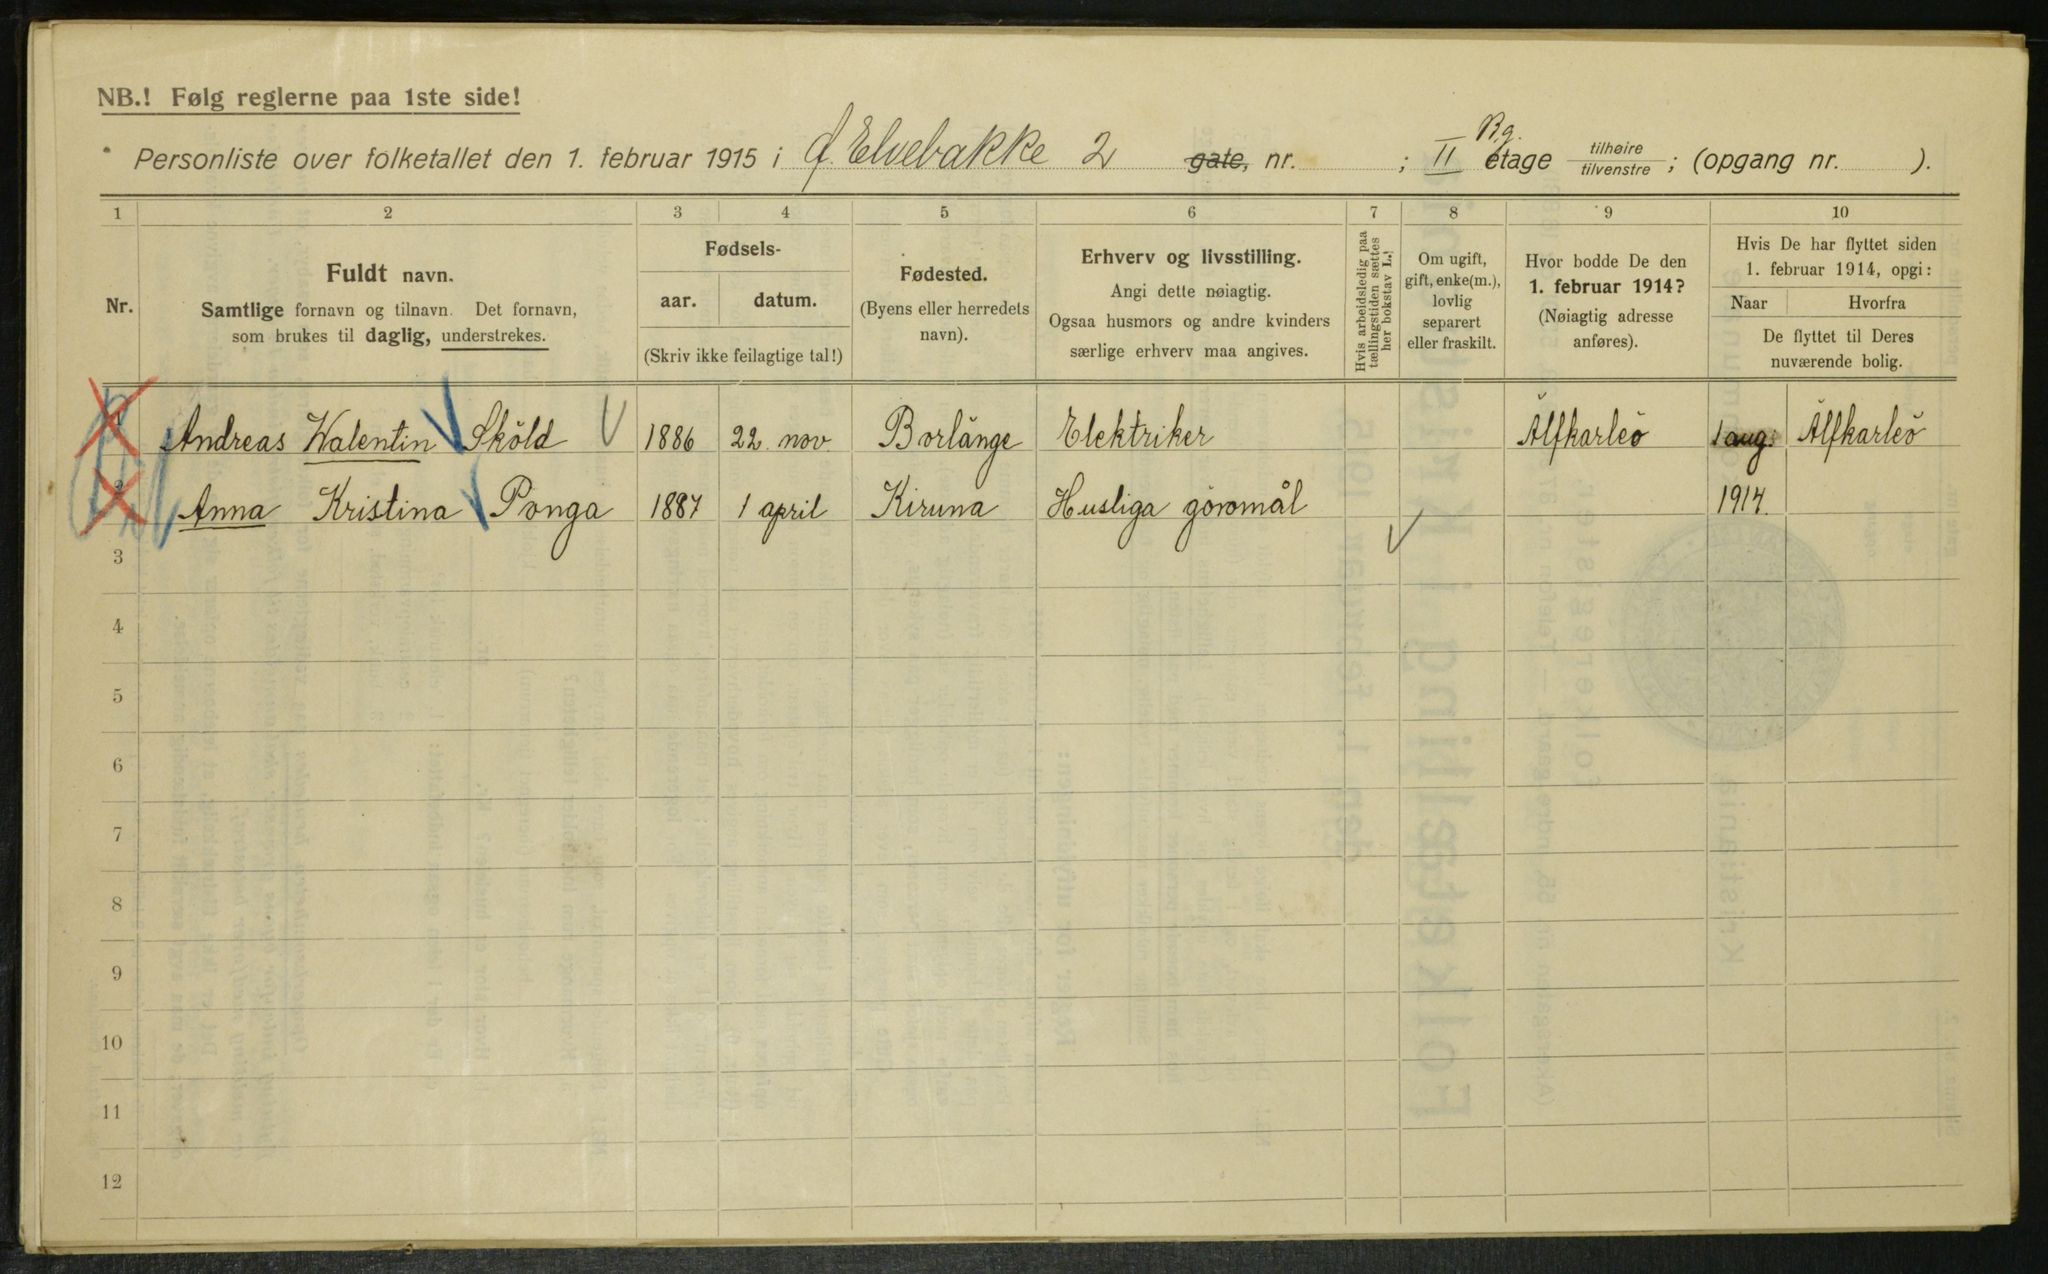 NB.! Følg reglerne paa 1ste side!
Personliste over folketallet den 1. februar 1915 i Ø. Elvebakke 2 gate, nr. ; II Bg. etage tilhøire tilvenstre ; (opgang nr. ).
1 2 3 4 5 6 7 8 9 10
Nr.
Fuldt navn.
Samtlige fornavn og tilnavn. Det fornavn,
som brukes til daglig, understrekes.
Fødsels-
aar. datum.
(Skriv ikke feilagtige tal!)
Fødested.
(Byens eller herredets
navn).
Erhverv og livsstilling.
Angi dette nøiagtig.
Ogsaa husmors og andre kvinders
særlige erhverv maa angives.
Hvis arbeidsledig paa
tællingstiden sættes
her bokstav L.!
Om ugift,
gift, enke(m.),
lovlig
separert
eller fraskilt.
Hvor bodde De den
1. februar 1914?
(Nøiagtig adresse
anføres).
Hvis De har flyttet siden
1. februar 1914, opgi:
Naar Hvorfra
De flyttet til Deres
nuværende bolig.
1 Andreas Walentin Sköld 1886 22. nov. Borlänge Elektriker Älfkarleö 1 aug. Älfkarleö
2 Anna Kristina Ponga 1887 1 april Kiruna Husliga göromål 1914.
3
4
5
6
7
8
9
10
11
12